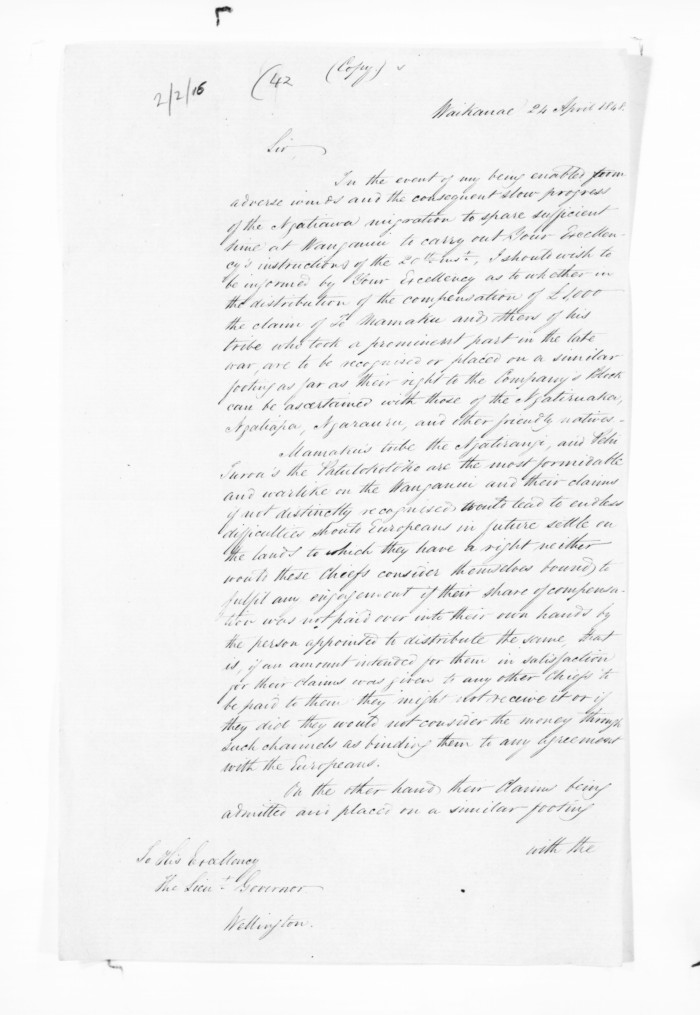 2/2/16
(42
(Copy)
Waikanae 24 April 1848.
Sir
In the event of my being enabled from
adverse winds and the consequent slow progress
of the Ngatiawa migration to spare sufficient
time at Wanganui to carry out Your Excellen-
cy's instructions of the 20th inst, I should wish to
be informed by Your Excellency as to whether in
the distribution of the compensation of £1,000
the claim of Te Mamaku and others of his
tribe who took a prominent part in the late
war, are to be recognised or placed on a similar
footing as far as their right to the Company's Block
can be ascertained with those of the Ngatiruaka,
Ngatiapa, Ngarauru, and other friendly natives-
Mamaku's tribe the Ngatirangi, and Pehi
Turoa's the Patutokotoko are the most formidable
and warlike on the Wanganui and their claims
if not distinctly recognised would lead to endless
difficulties should Europeans in future settle on
the lands to which they have a right neither
would these Chiefs consider themselves bound to
fulfil any engagement if their share of compensa-
tion was not paid over into their own hands by
the person appointed to distribute the same, that
is, if an amount intended for them in satisfaction
for their claims was given to any other Chiefs to
be paid to them they might not receive it or if
they did they would not consider the money through
such channels as binding them to any agreement
with the Europeans.
On the other hand their Claims being
admitted and placed on a similar footing
with the
To His Excellency
The Lieut. Governor
Wellington.